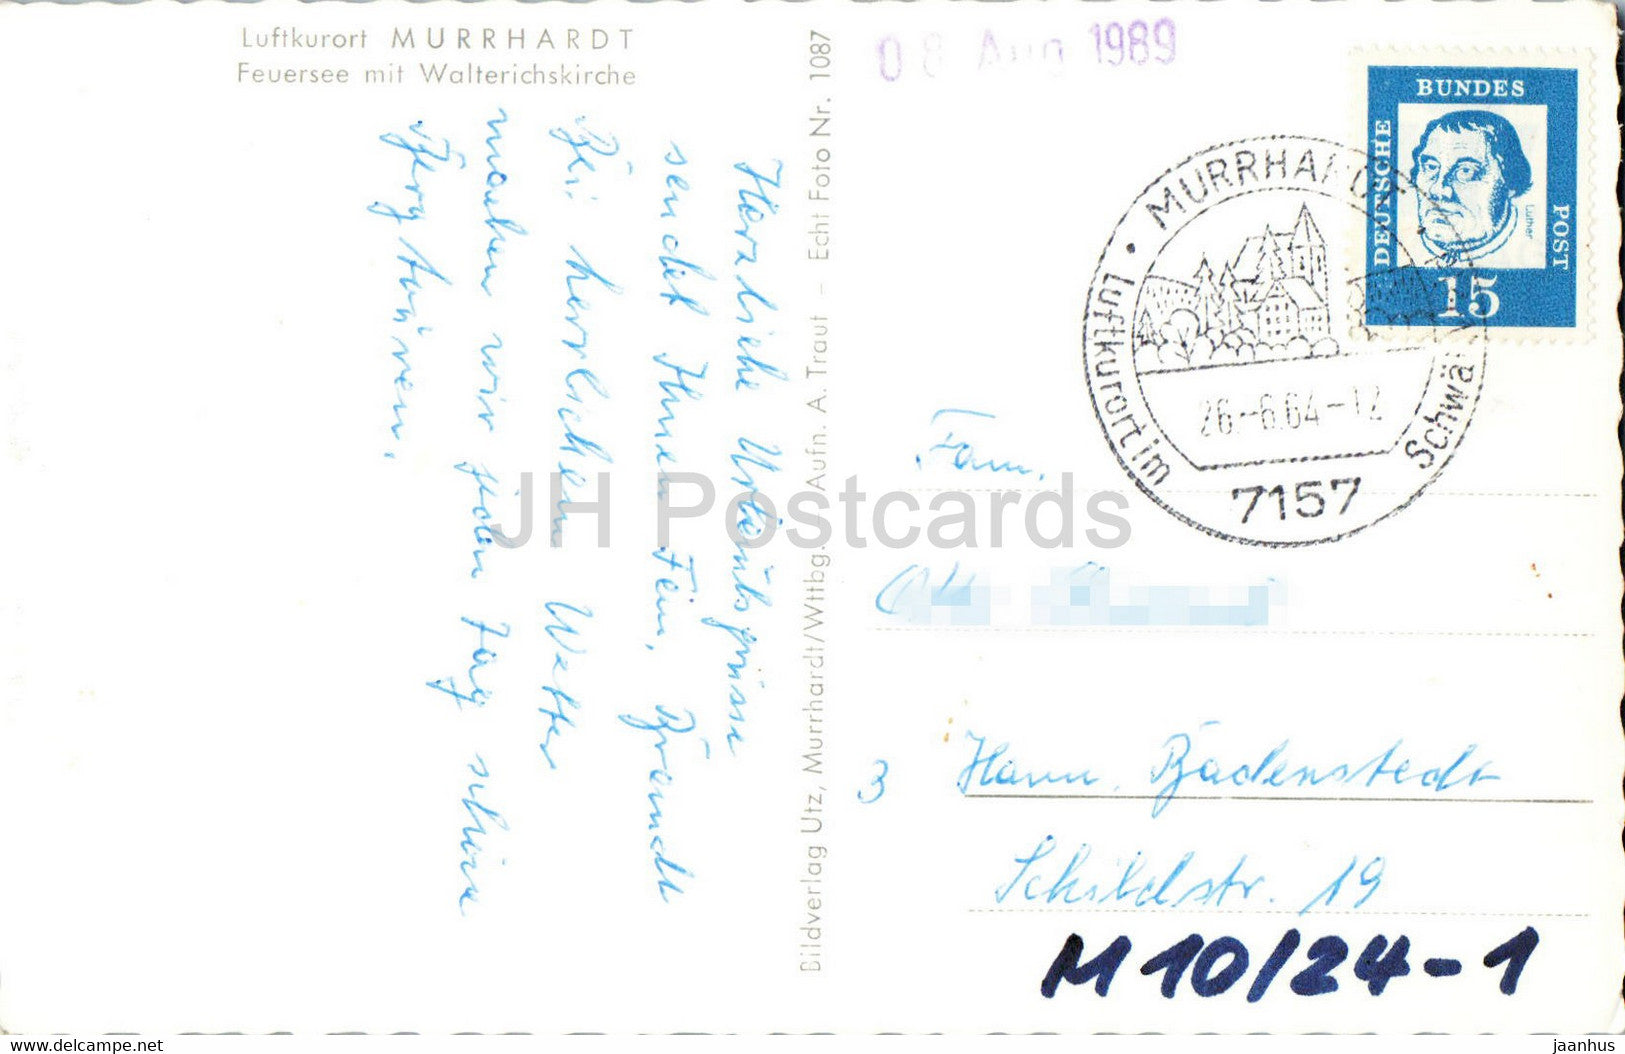 Luftkurort MURRHARDT
Feuersee mit Walterichskirche
Herzliche Urlaubsgrüsse
sendet Ihnen Fein, Brandt
Bei herrlichem Wetter
machen wir jeden Tag schöne
Bergtouren.
Bildverlag Utz, Murrhardt/Wttbg. Aufn. A. Traut - Echt Foto Nr. 1087
08 Aug 1989
DEUTSCHE
BUNDES
POST
Luther
15
· MURRHARDT ·
Luftkurort im
Schwäb
26.-6.64-12
7157
Fam.
3
Hann. Badenstedt
Schildstr. 19
M 10/24-1
JH Postcards
jaanhus
https://www.delcampe.net